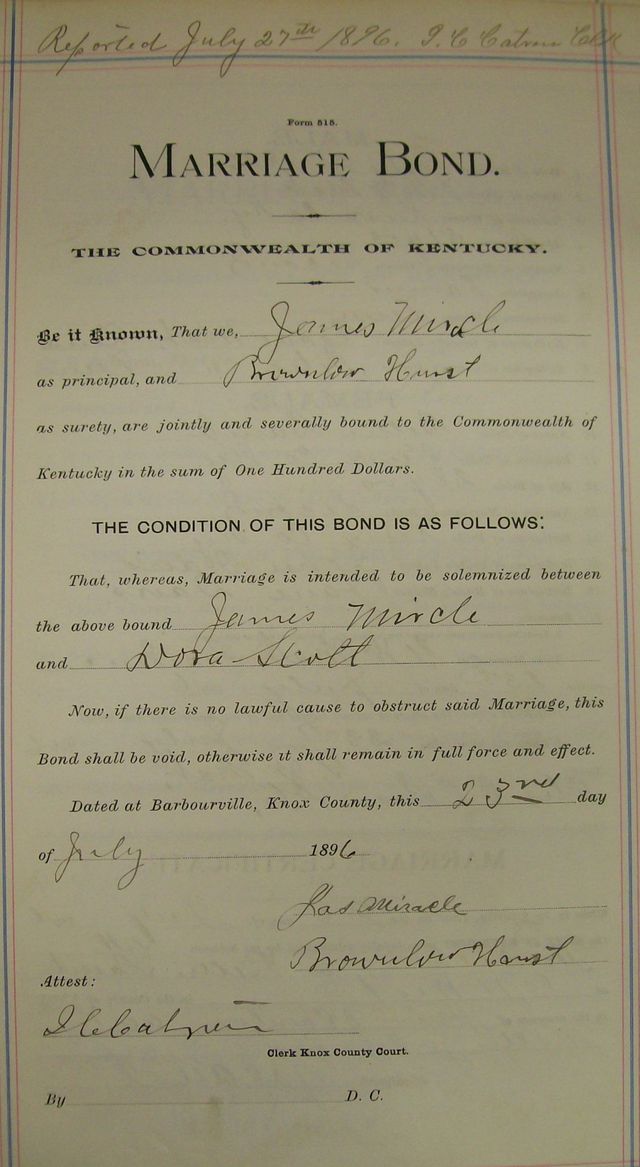 Reported July 27th 1896.
Form 515.
MARRIAGE BOND.
THE COMMONWEALTH OF KENTUCKY.
Be it Known, That we, James Miracle
as principal, and Brownlow Hurst
as surety, are jointly and severally bound to the Commonwealth of
Kentucky in the sum of One Hundred Dollars.
THE CONDITION OF THIS BOND IS AS FOLLOWS:
That, whereas, Marriage is intended to be solemnized between
the above bound James Mircle
and Dora Scott
Now, if there is no lawful cause to obstruct said Marriage, this
Bond shall be void, otherwise it shall remain in full force and effect.
Dated at Barbourville, Knox County, this 23rd day
of July 1896
Jas Miracle
Brownlow Hurst
Attest:
Clerk Knox County Court.
By D. C.